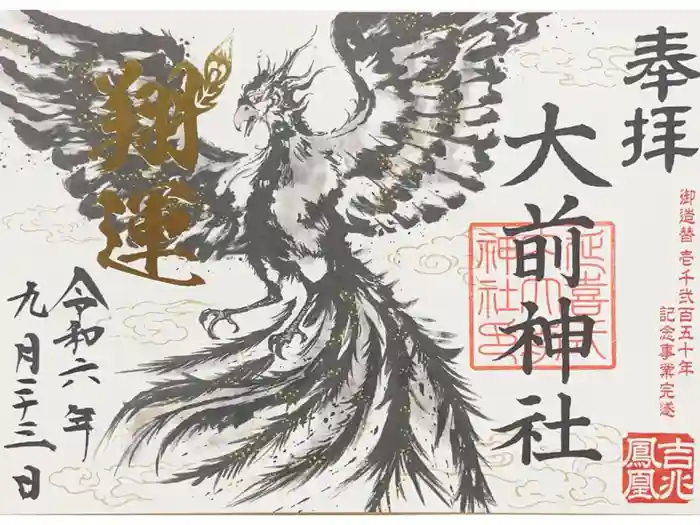 奉拝
御造替 壱千弐百五十年
記念事業完遂
吉兆
鳳凰
大前神社
延喜式
内大前
神社印
翔運
令和六年
九月二十三日